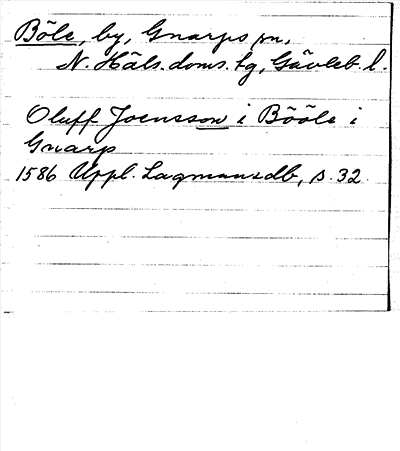 Böle, by, Gnarps sn,
N. Häls. doms. tg, Gävleb. l.
Oluff Joensson i Bööle i
Gnarp
1586 Uppl. Lagmansdb, s. 32.